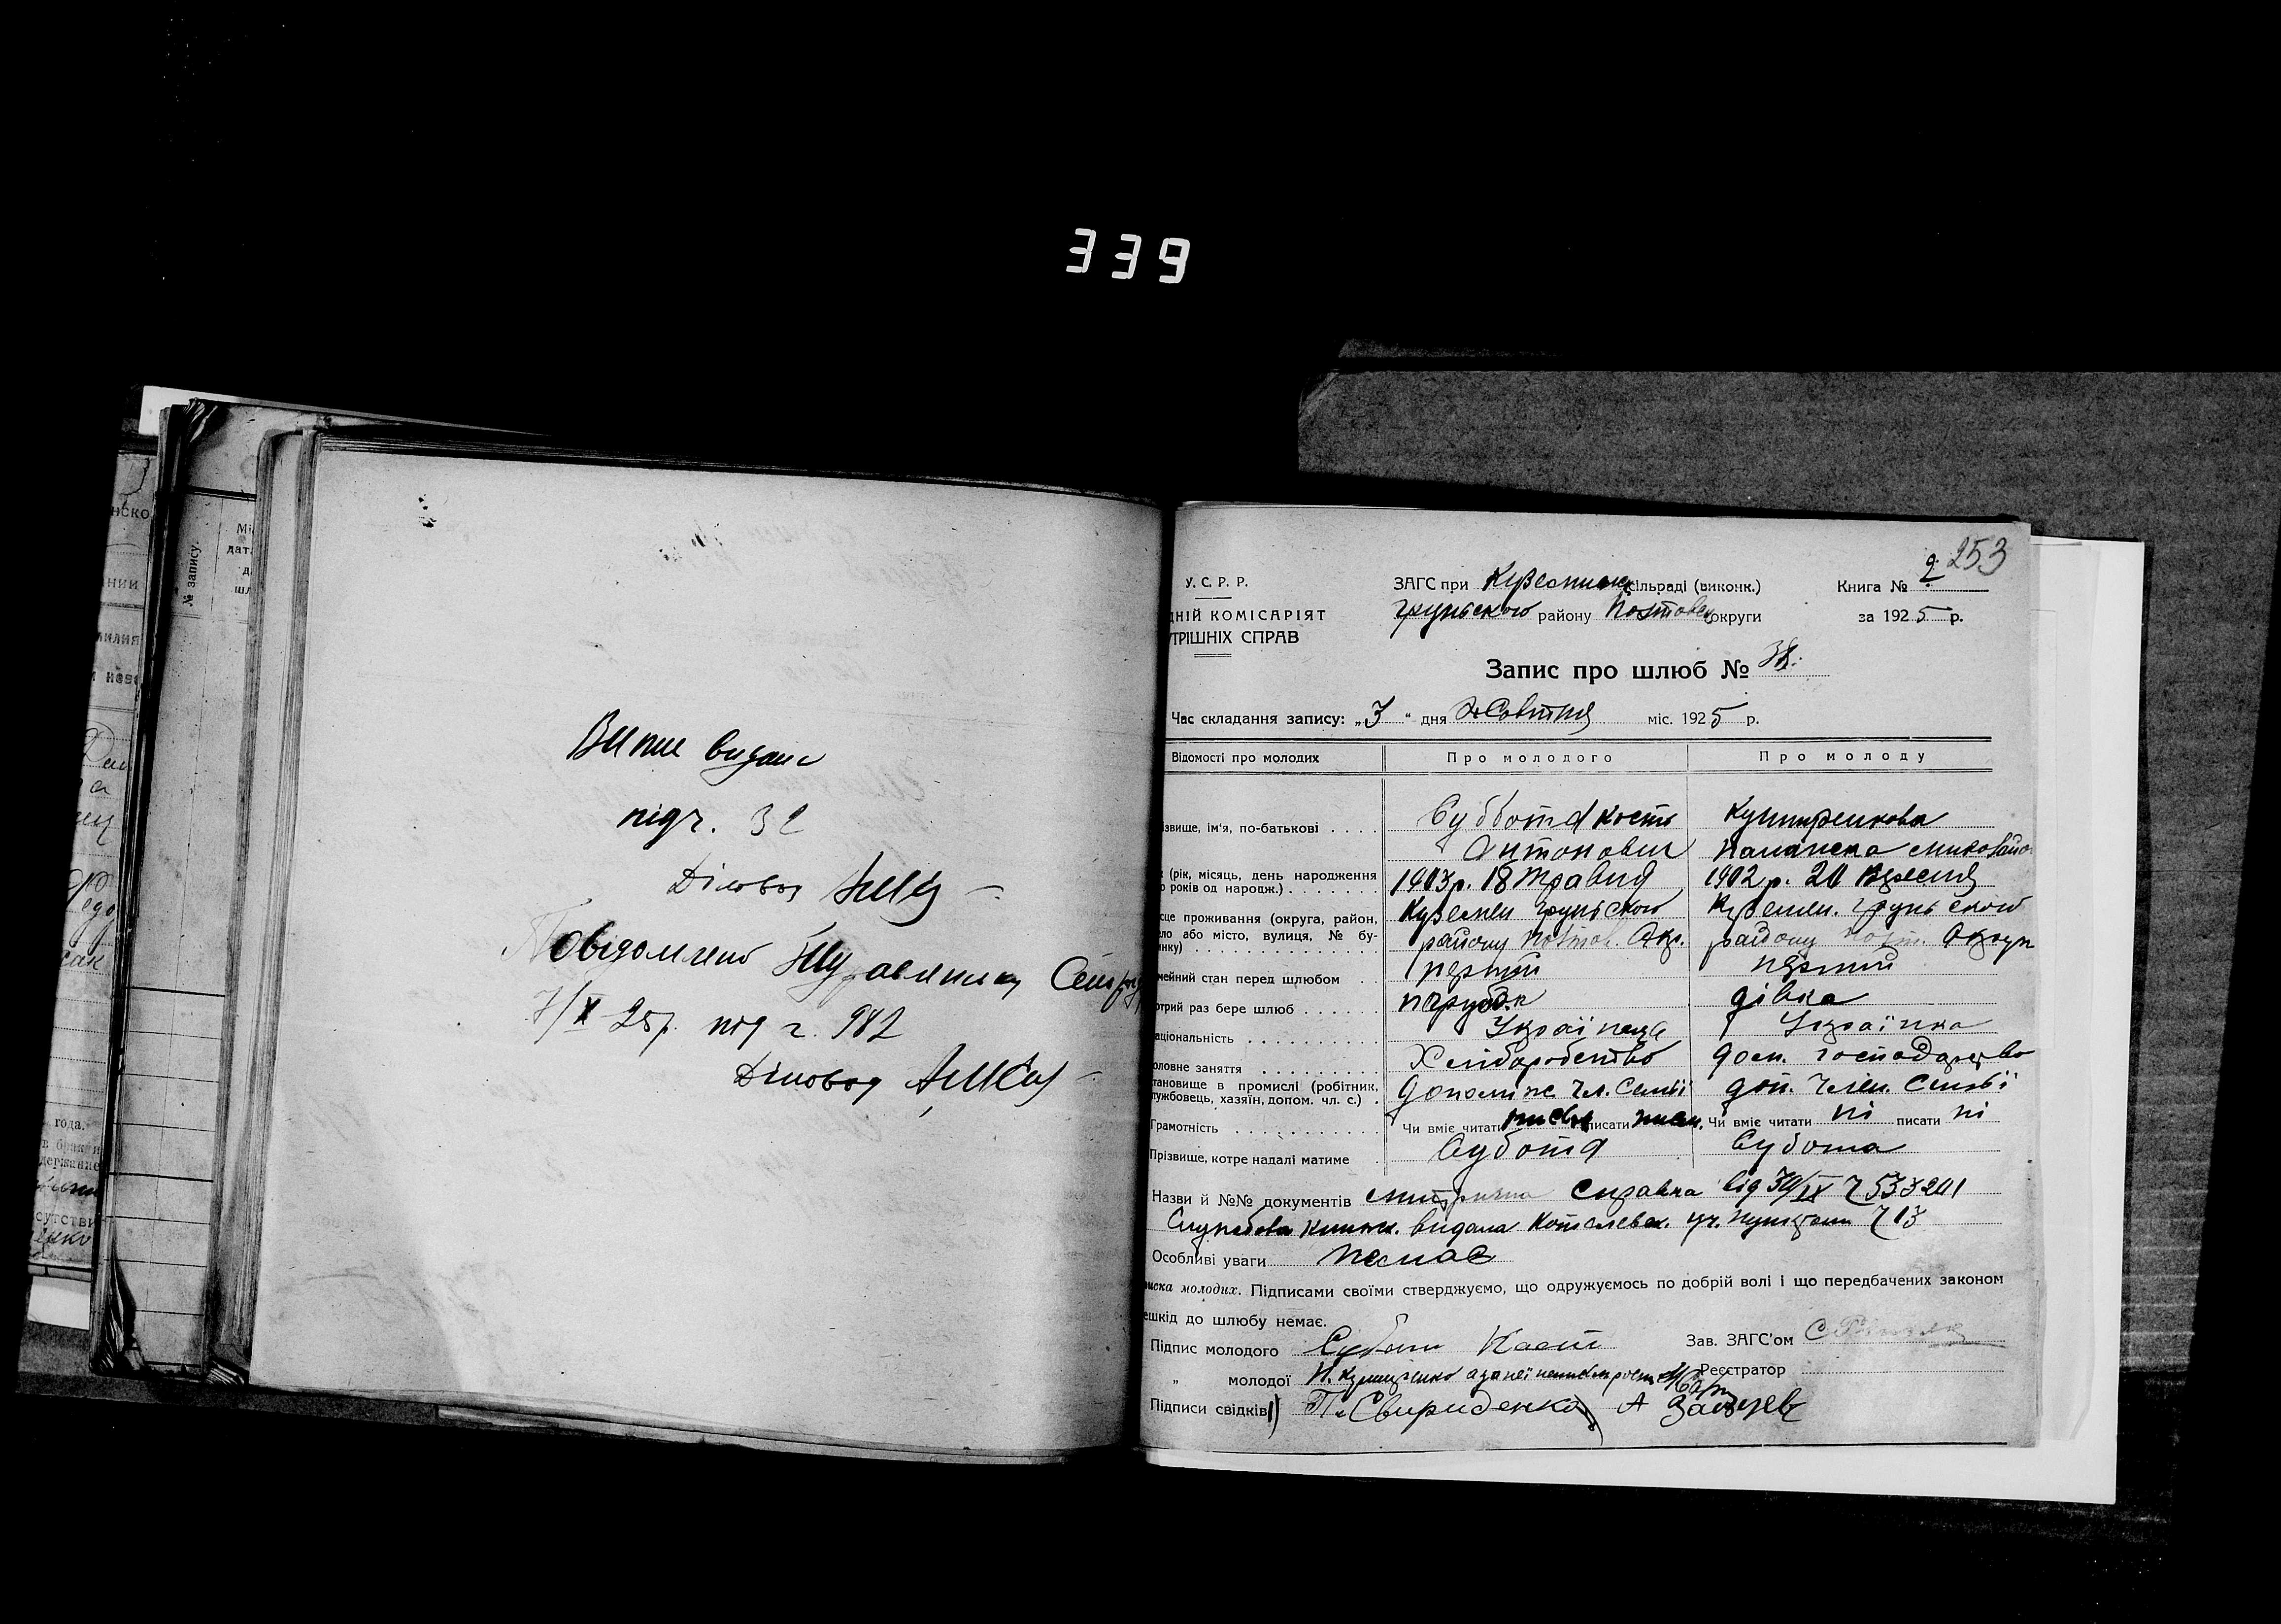 339
Випис видано
під ч. 32
Діловод
Повідомлено
7/X 25р. під ч. 982
Діловод
253
У. С. Р. Р.
ДНІЙ КОМІСАРІЯТ
ТРІШНІХ СПРАВ
ЗАГС при сільраді (виконк.)
Грунського району Полтавськ округи
Книга № 2
за 1925 р.
Запис про шлюб № 38.
Час складання запису: „3" дня Жовтня міс. 1925 р.
Відомості про молодих
Про молодого
Про молоду
звище, ім'я, по-батькові
Суббота Кость
Антонович
Кушнренкова
Миколайо
(рік, місяць, день народження
о років од народж.)
1903р. 18 травня
1902 р. 20 Вересня
сце проживання (округа, район,
ло або місто, вулиця, № бу-
инку)
Куземен Грунського
району Полтав. Окр.
Куземен. Грунського
району Полт. Округи
мейний стан перед шлюбом
перший
перший
отрий раз бере шлюб
парубок
дівка
аціональність
Українець
Українка
оловне заняття
Хліборобство
дом. господарство
тановище в промислі (робітник,
лужбовець, хазяїн, допом. чл. с.)
допоміж чл. семьї
доп. член. семьї
Грамотність
Чи вміє читати писати
Чи вміє читати ні писати ні
Прізвище, котре надалі матиме
Субота
Субота
Назви й №№ документів метрична справка від 30/IX
видана Котелевск.
Особливі уваги немає
иска молодих. Підписами своїми стверджуємо, що одружуємось по добрій волі і що передбачених законом
ешкід до шлюбу немає.
Підпис молодого Субота Кост
Зав. ЗАГС'ом
„ молодої П. Кушніренко а за неї
Реєстратор
Підписи свідків 1) П. Свириденко А